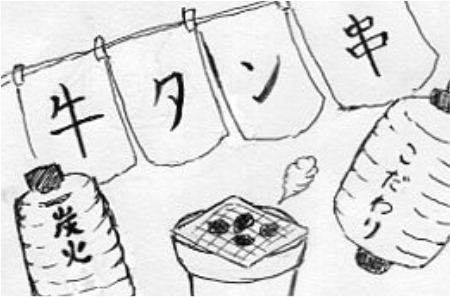 牛タン串
炭火
こだわり